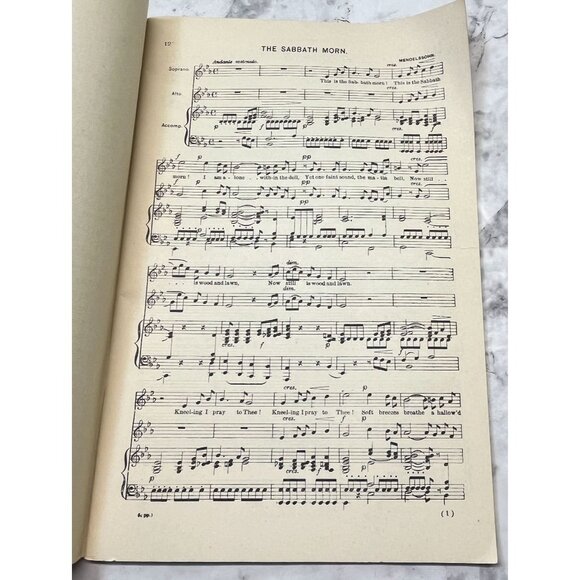 12
THE SABBATH MORN.
Andante sostenuto.
MENDELSSOHN.
cres.
Soprano.
This is the Sab-bath morn! This is the Sabbath
cres.
Alto
cres.
Accomp.
p f f
p pp cres.
morn! I am a-lone, with-in the dell, Yet one faint sound, the ma-tin bell, Now still
p pp cres.
p pp cres.
dim.
is wood and lawn, Now still is wood and lawn.
dim.
cres. f p
p cres.
Kneel-ing I pray to Thee! Kneel-ing I pray to Thee! Soft breezes breathe a hallow'd
cres. p
cres. f p
(1)